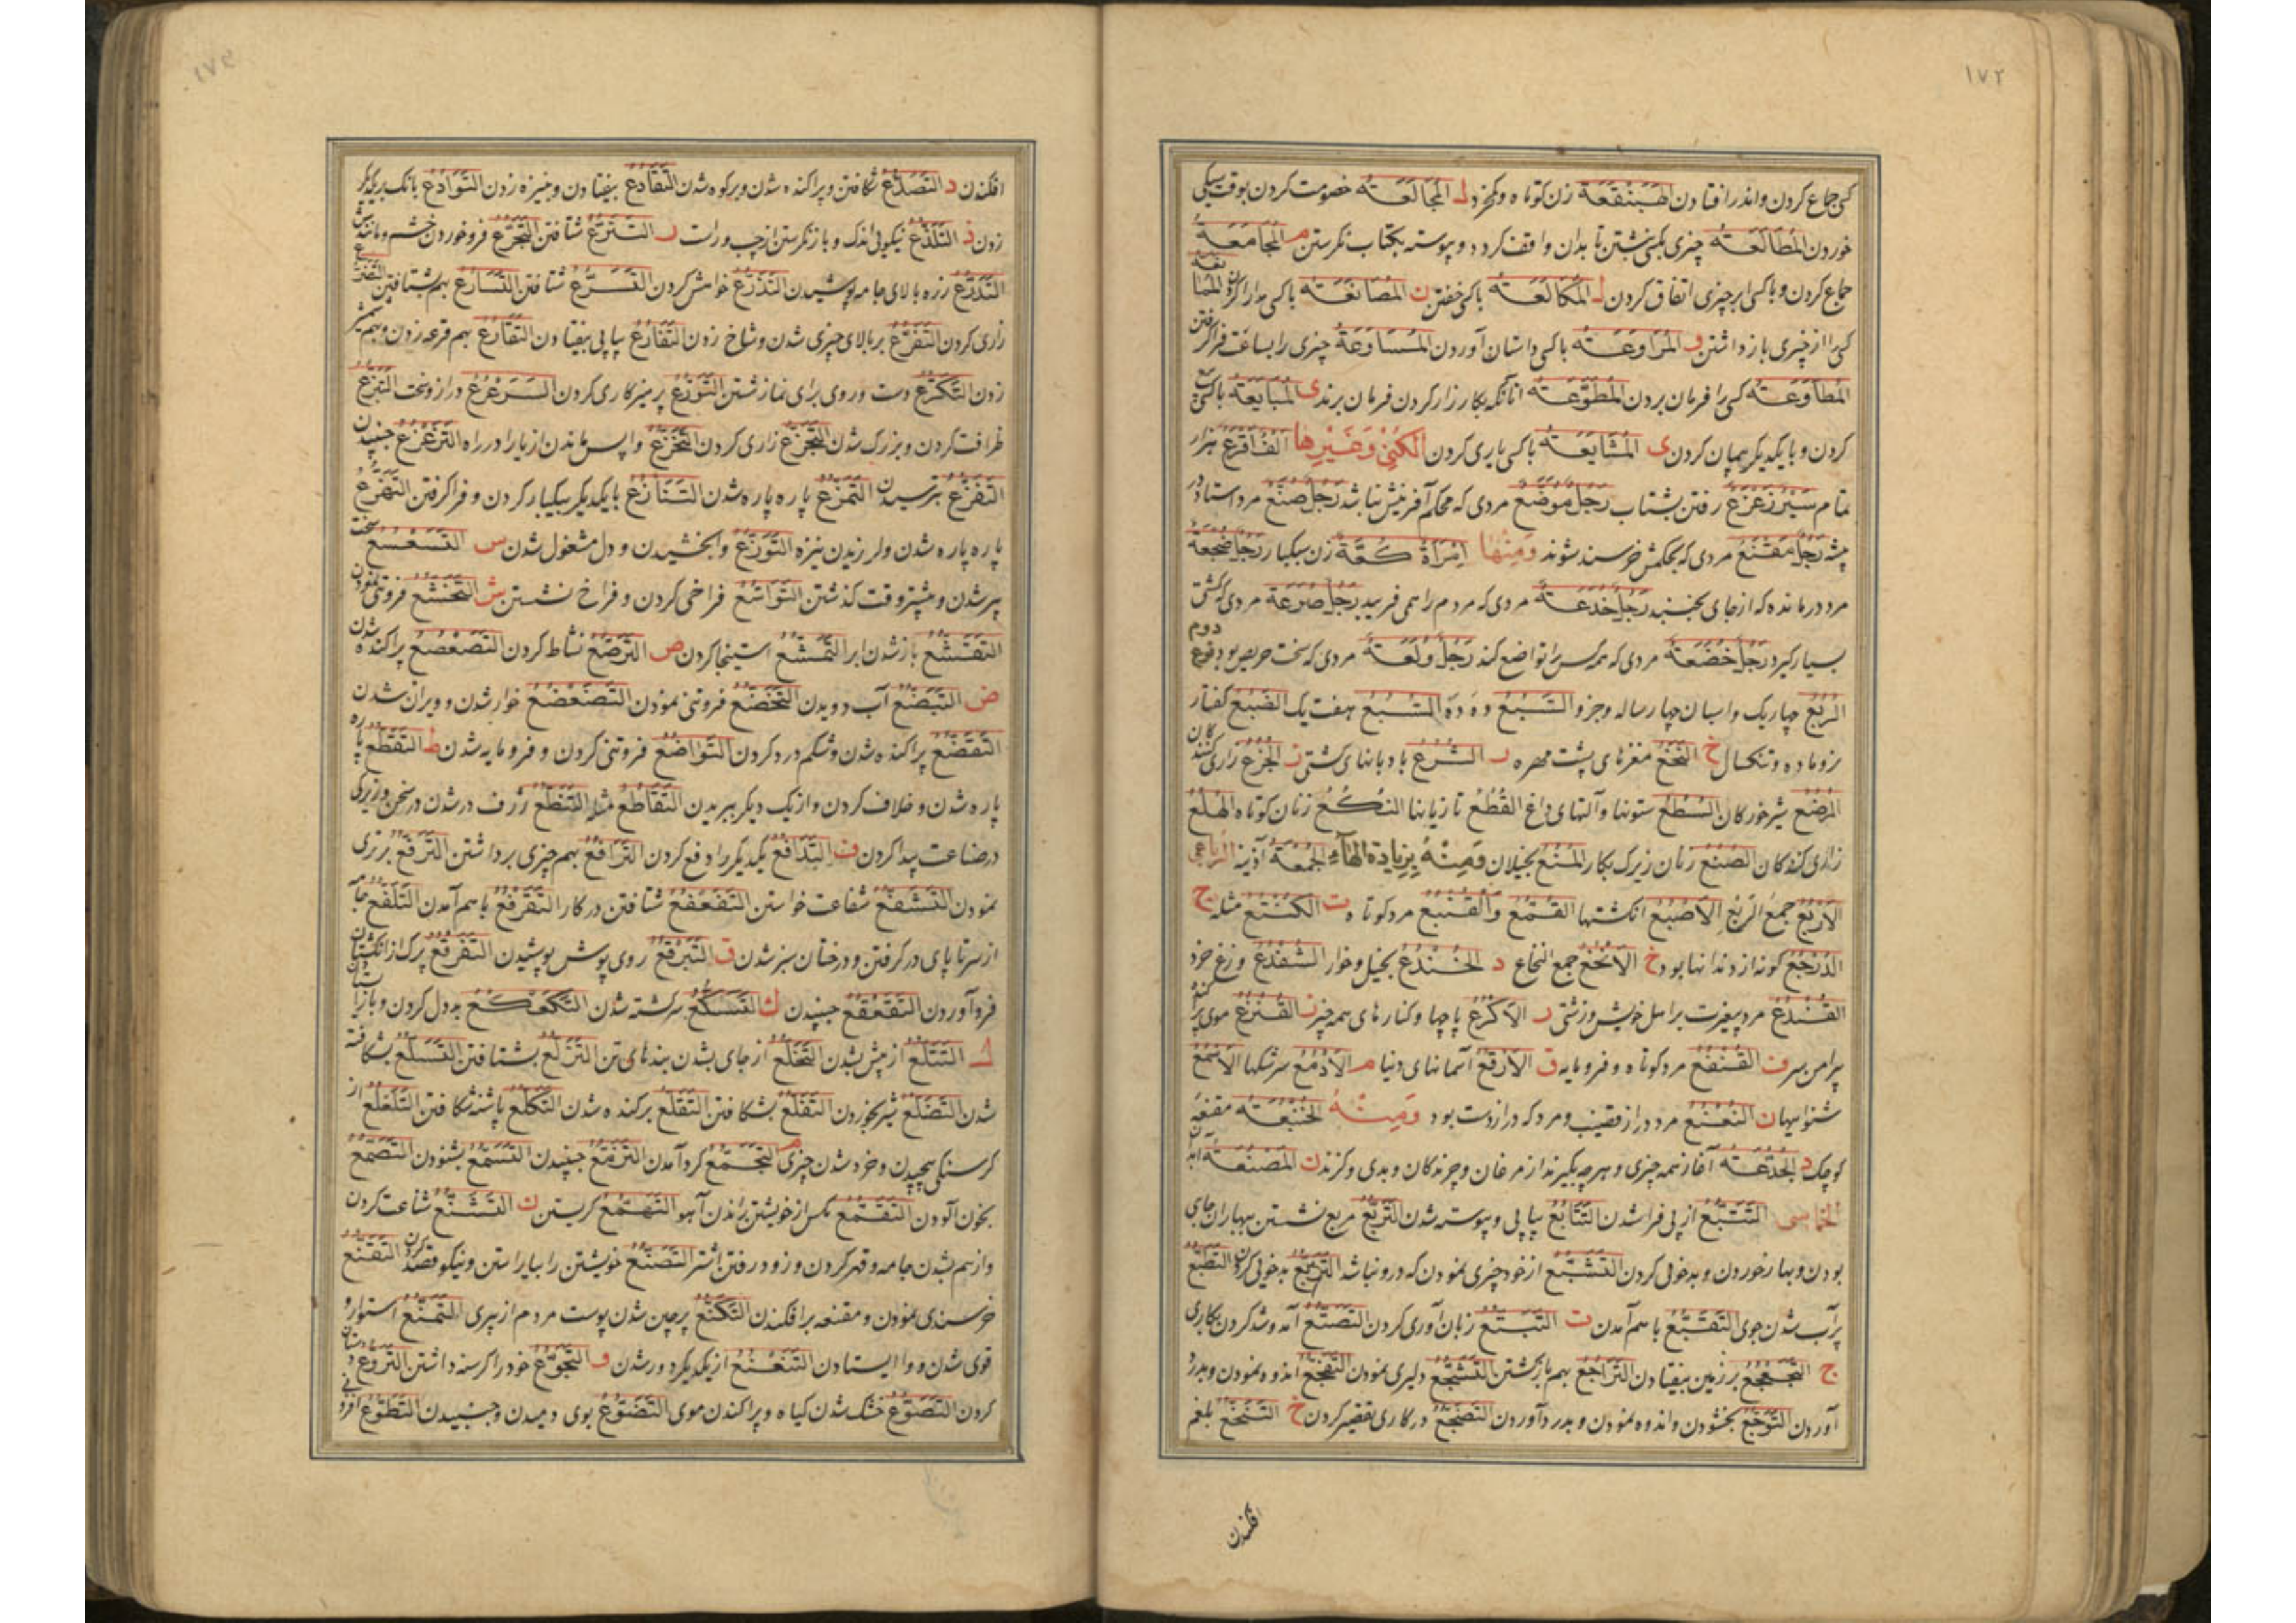 ۱۷۲
کسی جماع کردن واندر افتادن الهَبَنْقَعَة زن کوتاه و کخرد ل المُجَالَعَة خصومت کردن بوقت سیکی
خوردن المُطَالَعَة چیزی بکسی نبشتن تا بدان واقف کردد و پیوسته بکتاب نکرستن م المُجَامَعَة
جماع کردن و با کسی بر چیزی اتفاق کردن المُكَالَعَة با کسی خفتن ن المُصَانَعَة با کسی مدارا کردن
کسی را از چیزی باز داشتن و المُرَاوَعَة با کسی داستان آوردن المُسَاوَعَة چیزی را بساعت فرا کرفتن
المُطَاوَعَة کسی را فرمان بردن المُطَّوِّعَة آنانکه بکارزار کردن فرمان برند ی المُبَايَعَة با کسی بیع
کردن و با یکدیکر پیمان کردن ی المُشَايَعَة با کسی یاری کردن الکُنَی وَغَیْرِها الفَاقِع هزار
تمام سَيْرٌ زَعْزَعٌ رفتن بشتاب رَجُلٌ مُوَضَّعٌ مردی که محکم آفرینش نباشد رَجُلٌ صَنَعٌ مرد استاد در
پیشه رَجُلٌ مَقْنَعٌ مردی که بحکمش خرسند شوند وَمِنْهَا اِمْرَأَةٌ كَعَّةٌ زن سبکبار رَجُلٌ ضُجَعَةٌ
مرد درمانده که از جای نجنبد رَجُلٌ خُدَعَةٌ مردی که مردم را همی فریبد رَجُلٌ صُرَعَةٌ مردی که کشتی
بسیار کیرد رَجُلٌ خُضَعَةٌ مردی که همه کس را تواضع کند رَجُلٌ وُلَعَةٌ مردی که سخت حریص بود
الرُّبُعُ چهاریک واسبان چهارساله و جزو السَّبُعُ دد و دده السُّبُعُ هفت یک الضَّبُعُ کفتار
نر و ماده و تنکسال خ النُّخُعُ مغزهای پشت مهره ر الشُّرُعُ بادبانهای کشتی ز الجُزُعُ زاری کنندکان
المُرْضِعُ شیرخورکان السُّطُعُ ستونها و آلتهای داغ القُطُعُ تازیانها النُّكُعُ زنان کوتاه الهُلُعُ
زاری کنندکان الصُّنُعُ زنان زیرک بکار المُنُعُ بخیلان وَمِنْهُ بِزِيَادَةِ الهَآءِ الجُمُعَةُ آذینه الرباعی
الاَرْبُعُ جمعُ الرَّبْعِ الاَصْبُعُ انکشتها القُمُّعُ وَ القُنْبُعُ مرد کوتاه ت الکُنْتُعُ مثله ج
الدُّرْجُعُ کونه از دندانها بود خ الاَنْخُعُ جمع النخاع د الخُنْدُعُ بخیل و خوار الشُّفْدُعُ وزغ خرد
القُنْدُعُ مرد بیغیرت بر اهل خویش و زشتی ر الاَکْرُعُ پاچها و کنارهای همه چیز ز القُنْزُعُ موی
پیرامن سر ف القُنْفُعُ مرد کوتاه و فرومایه ق الاَرْقُعُ آسمانهای دنیا م الاَدْمُعُ سرشکها الاَسْمُعُ
شنوائیها ن النُّعْنُعُ مرد دراز قضیب و مرد که دراز دست بود وَمِنْهُ الخُنْبُعَة مقنعه
کوچک د الجُدُعَة آغاز همه چیزی و هرچه بکیرند از مرغان و چرندکان و بدی و کزند ن المَصْنُعَة
الخماسی التَّتَبُّعُ از پی فراشدن التَّتَابُعُ پیاپی و پیوسته شدن التَّرَبُّعُ مربع نشستن بهاران جای
بودن و بهار خوردن و بدخویی کردن التَّشَبُّعُ از خود چیزی نمودن که درو نباشد بدخویی کردن التَّطَبُّعُ
پرآب شدن جوی التَّقَبُّعُ باهم آمدن ت التَّبَتُّعُ زبان آوری کردن التَّصَتُّعُ آمد و شد کردن بکاری
ج التَّجَعْجُعُ بر زمین بیفتادن التَّرَاجُعُ بهم بازکشتن التَّشَجُّعُ دلیری نمودن التَّفَجُّعُ اندوه نمودن و بدرد
آوردن التَّوَجُّعُ بخشودن و اندوه نمودن و بدرد آوردن التَّضَجُّعُ در کاری تقصیر کردن خ التَّنَخُّعُ بلغم
افکندن
افکندن د التَّصَدُّعُ شکافتن و پراکنده شدن و بر کوه شدن التَّقَادُعُ بیفتادن و بنیزه زدن التَّوَادُعُ بانک بریکدیکر
زدن ذ التَّلَذُّعُ نیکویی اندک و باز نکرستن از چپ و راست ر التَّتَرُّعُ شتافتن التَّجَرُّعُ فرو خوردن خشم و مانندش
التَّدَرُّعُ زره بالای جامه پوشیدن التَّذَرُّعُ خواهش کردن التَّسَرُّعُ شتافتن التَّسَارُعُ بهم بشتافتن التَّضَرُّعُ
زاری کردن التَّفَرُّعُ بر بالای چیزی شدن و شاخ زدن التَّفَارُعُ پیاپی بیفتادن التَّقَارُعُ بهم قرعه زدن و بهم شمشیر
زدن التَّكَرُّعُ دست و روی برای نماز شستن التَّوَرُّعُ پرهیزکاری کردن السَّرَعْرُعُ دراز و سخت التَّبَزُّعُ
ظرافت کردن و بزرک شدن التَّجَزُّعُ زاری کردن التَّخَزُّعُ واپس ماندن از یار در راه التَّزَعْزُعُ جنبیدن
التَّفَزُّعُ بترسیدن التَّمَزُّعُ پاره پاره شدن التَّنَازُعُ با یکدیکر پیکار کردن و فراکرفتن التَّهَزُّعُ
پاره پاره شدن و لرزیدن نیزه التَّوَزُّعُ وابخشیدن و دل مشغول شدن س التَّسَعْسُعُ سخت
پیر شدن و بیشتر وقت کذشتن التَّوَاسُعُ فراخی کردن و فراخ نشستن ش التَّخَشُّعُ فروتنی نمودن
التَّقَشُّعُ باز شدن ابر التَّمَشُّعُ استنجا کردن ص التَّرَصُّعُ نشاط کردن التَّصَعْصُعُ پراکنده شدن
ض التَّبَضُّعُ آب دویدن التَّخَضُّعُ فروتنی نمودن التَّضَعْضُعُ خوار شدن و ویران شدن
التَّقَضُّعُ پراکنده شدن و شکم درد کردن التَّوَاضُعُ فروتنی کردن و فرومایه شدن ط التَّقَطُّعُ پاره
پاره شدن و خلاف کردن و از یک دیکر ببریدن التَّقَاطُعُ مثله التَّنَطُّعُ ژرف در شدن در سخن و زیرکی
در صناعت پیدا کردن ف التَّدَافُعُ یکدیکر را دفع کردن التَّرَافُعُ بهم چیزی برداشتن التَّرَفُّعُ برتری
نمودن التَّشَفُّعُ شفاعت خواستن التَّفَعْفُعُ شتافتن در کار التَّقَرْفُعُ باهم آمدن التَّلَفُّعُ جامه
از سر تا پای در کرفتن و درختان سبز شدن ق التَّبَرْقُعُ روی پوش پوشیدن التَّفَرْقُعُ ترک از انکشتان
فرو آوردن التَّقَعْقُعُ جنبیدن ك التَّسَكُّعُ سرکشته شدن التَّكَعْكُعُ بددل کردن و بازایستادن
ل التَّتَلُّعُ از پیش بشدن التَّخَلُّعُ از جای بشدن بندهای تن التَّزَلُّعُ بشتافتن التَّسَلُّعُ بشکافته
شدن التَّضَلُّعُ سیر بخوردن التَّفَلُّعُ بشکافتن التَّقَلُّعُ برکنده شدن التَّكَلُّعُ پاشنه شکافتن التَّلَعْلُعُ از
کرسنکی پیچیدن و خرد شدن چیزی م التَّجَمُّعُ کرد آمدن التَّزَمُّعُ جنبیدن التَّسَمُّعُ بشنودن التَّصَمُّعُ
بخون آلودن التَّقَمُّعُ مکس از خویشتن براندن آهو التَّهَمُّعُ کریستن ن التَّشَنُّعُ شناعت کردن
و از هم بشدن جامه و قهر کردن و زود رفتن اشتر التَّصَنُّعُ خویشتن را بیاراستن و نیکو قصد کردن التَّقَنُّعُ
خرسندی نمودن و مقنعه برافکندن التَّكَنُّعُ پرچین شدن پوست مردم از پیری التَّمَنُّعُ استوار و
قوی شدن و وا ایستادن التَّنَعْنُعُ از یکدیکر دور شدن و التَّجَوُّعُ خود را کرسنه داشتن التَّرَوُّعُ
کردن التَّصَوُّعُ خشک شدن کیاه و پراکندن موی التَّضَوُّعُ بوی دمیدن و جنبیدن التَّطَوُّعُ